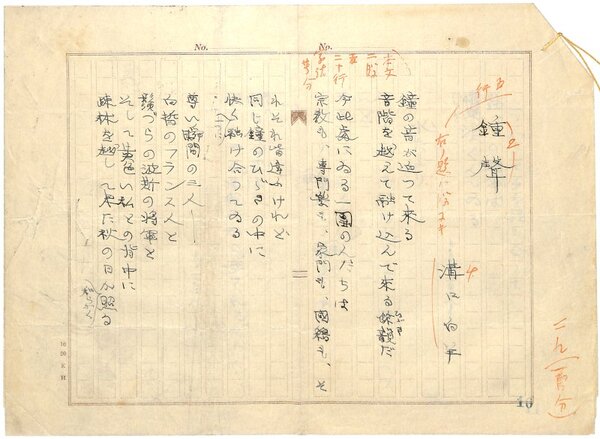 鐘聲
溝口白羊
鐘の音が近つて来る
音階を越えて融け込んで来る餘韻だ
今此處にゐる一團の人だちは
宗教も、専門業も、家門も、國籍も、そ
れそれ皆違ふけれど
同じ鐘のひゞきの中に
快く融け合つてゐる
尊い瞬間の三人――
白皙のフランス人と
鬚づらの波斯の将軍と
そして黄色い私との背中に
疎林を越して来た秋の日が照る
本文
二段
二十行
五行
No.
No.
10